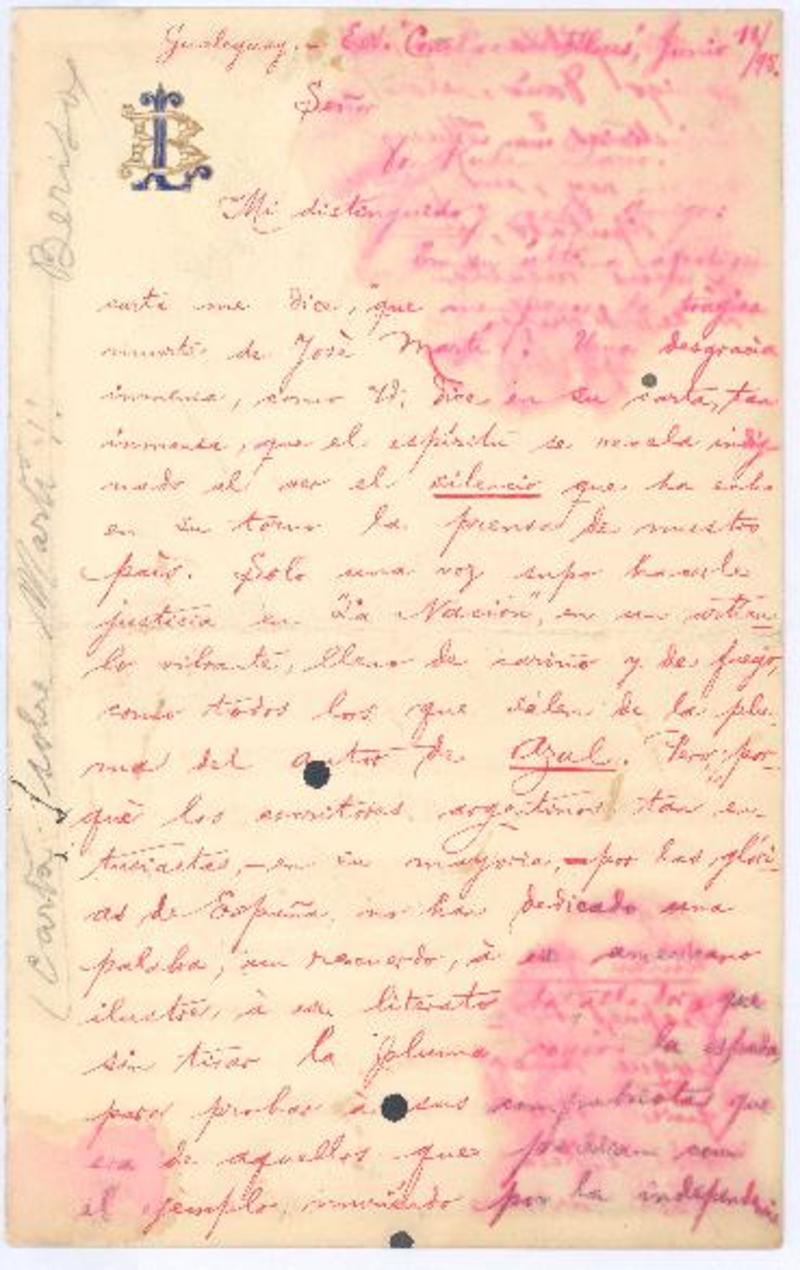 Gualeguay. - Junio 11/95.
Señor
Mi distinguido
carta me dice, "que la trágica
muerte de José Martí"! Una desgracia
inmensa, como Vd. dice en su carta, tan
inmensa, que el espíritu se revela indig-
nado al ver el silencio que ha
en su torno la prensa de nuestro
país. Solo una voz supo hacerle
justicia en "La Nación", en un artícu-
lo vibrante, lleno de cariño y de fuego,
como todos los que salen de la plu-
ma del autor de Azul. Pero, ¿por-
qué los escritores argentinos tan en-
tusiastas, - en su mayoria, - por las glóri-
as de España, no han dedicado una
palabra, un recuerdo, à ese americano
ilustre, à ese literato que
sin tirar la pluma, la espada,
para probar à sus compatriotas que
era de aquellos que predican con
el ejemplo, muriendo por la independencia
(Carta, sobre Martí). Berisso